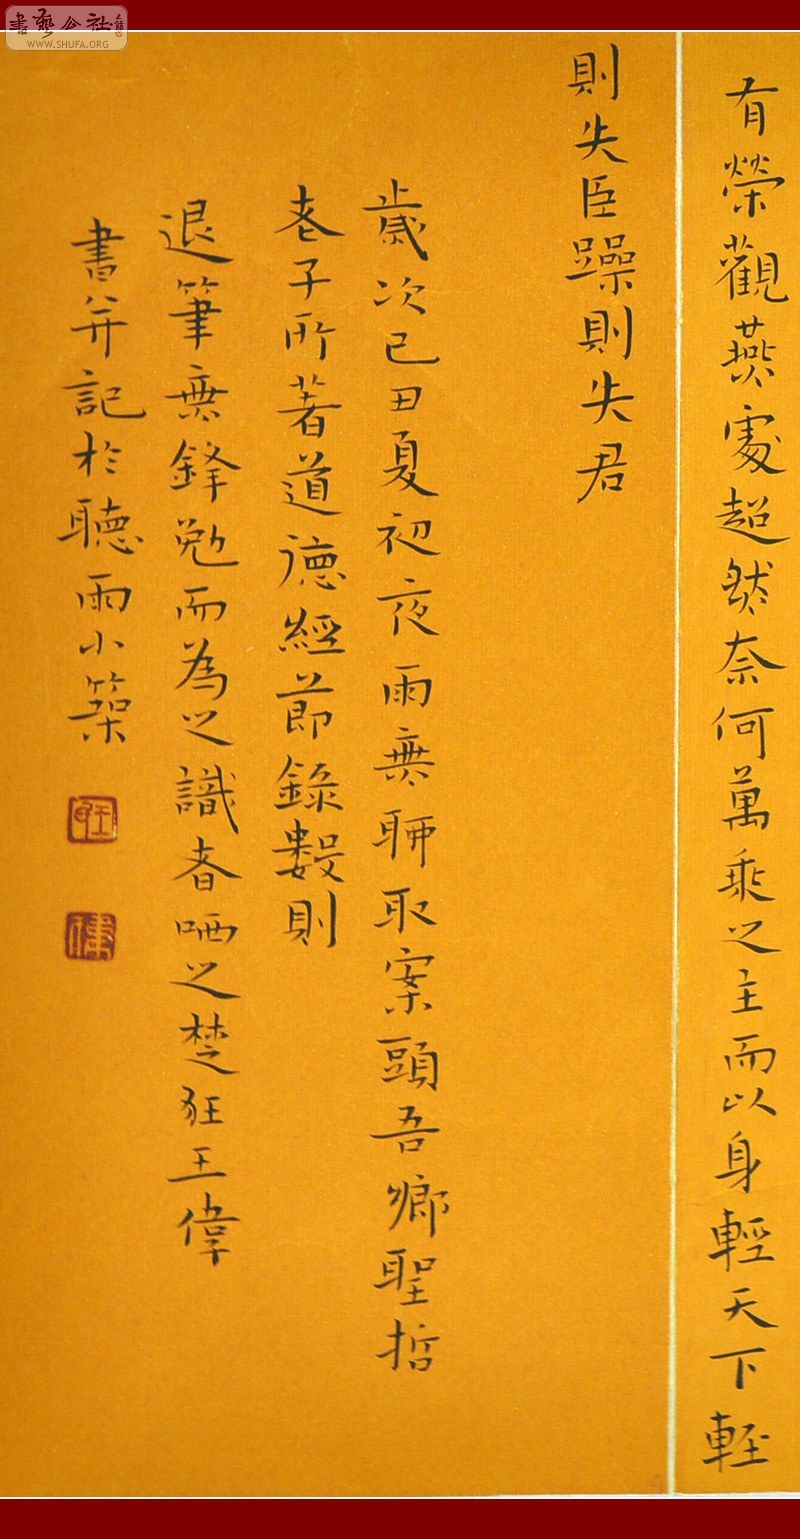 有榮觀燕處超然奈何萬乘之主而以身輕天下輕
則失臣躁則失君
歲次己丑夏初夜雨無聊取案頭吾鄉聖哲
老子所著道德經節錄數則
退筆無鋒勉而為之識者哂之楚狂王偉
書并記於聽雨小築
書艺公社
WWW.SHUFA.ORG